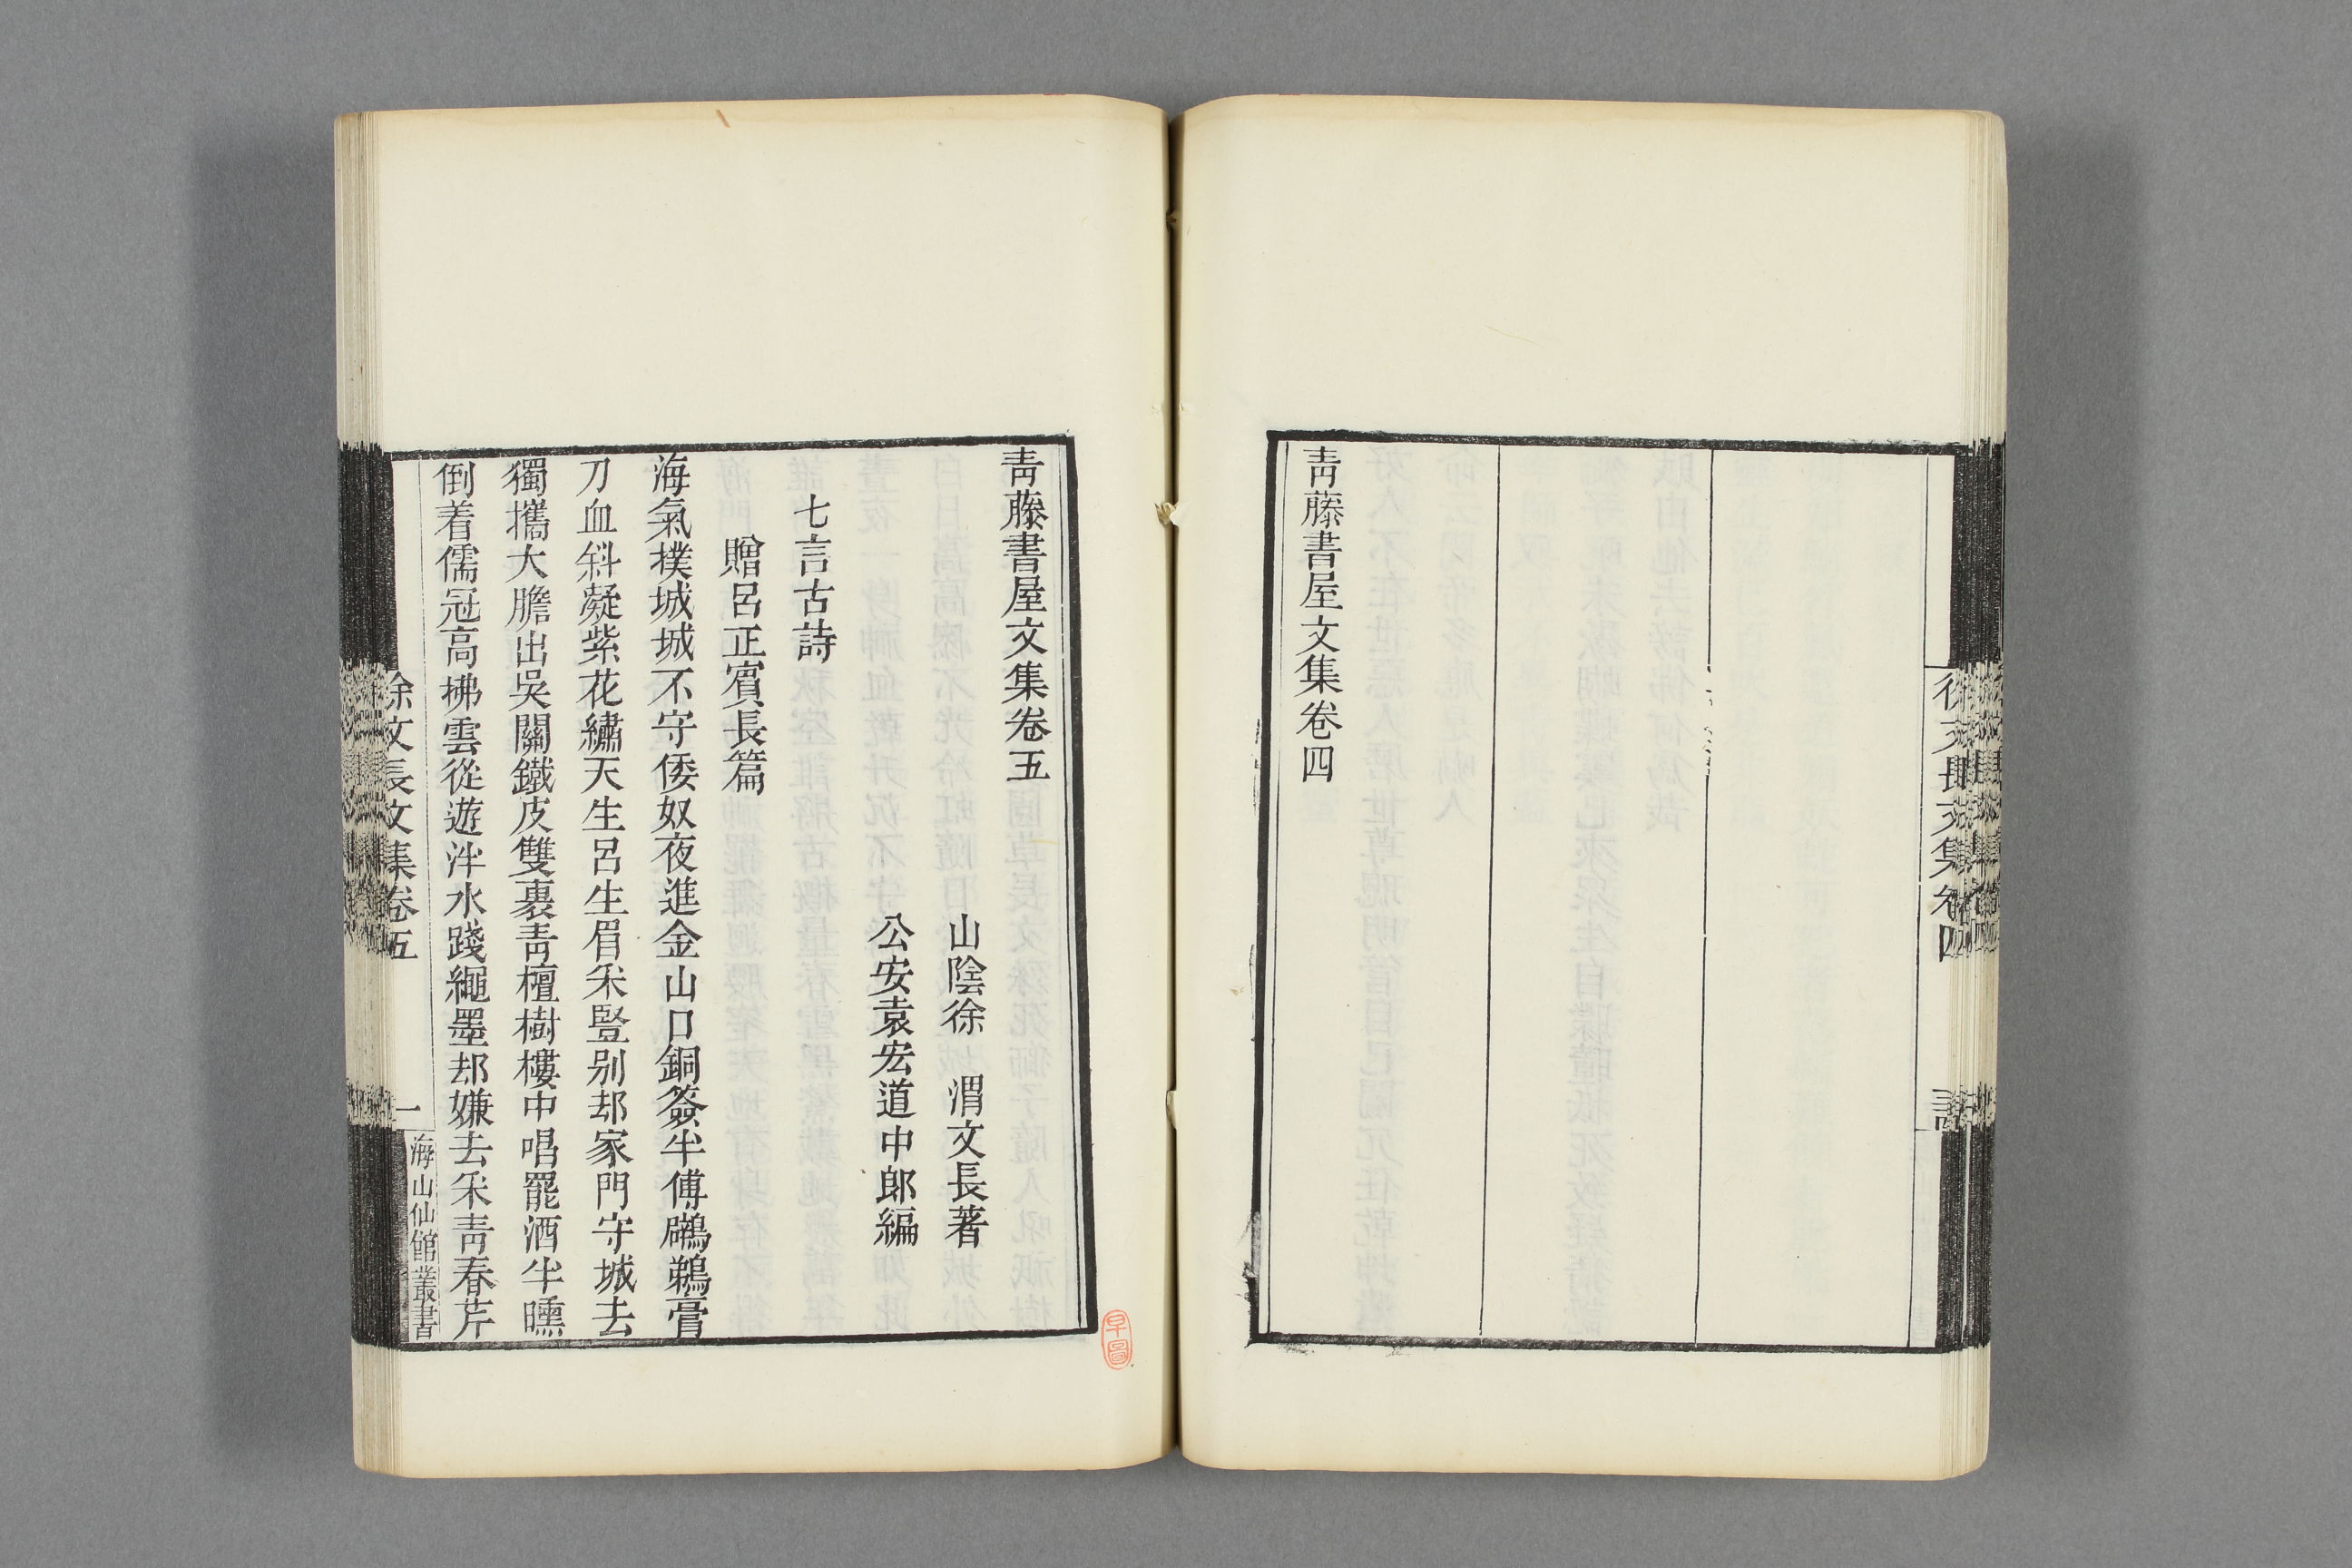 青藤書屋文集卷四
徐文長文集卷四
青藤書屋文集卷五
山陰徐　渭文長著
公安袁宏道中郎編
七言古詩
贈呂正賓長篇
海氣撲城城不守倭奴夜進金山口銅簽半傅鸊鵜膏
刀血斜凝紫花繡天生呂生眉采豎别却家門守城去
獨攜大膽出吳關鐵皮雙裹青檀樹樓中唱罷酒半曛
倒着儒冠高拂雲從遊泮水踐繩墨却嫌去采青春芹
徐文長文集卷五
一
海山仙館叢書
早圖